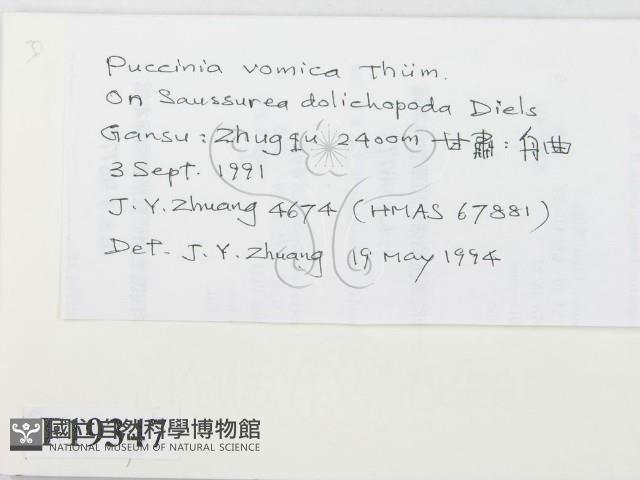 Puccinia vomica Thüm.
On Saussurea dolichopoda Diels
Gansu : Zhugqu 2400m 甘肅 : 舟曲
3 Sept. 1991
J. Y. Zhuang 4674 (HMAS 67881)
Det. J. Y. Zhuang 19 May 1994
F19347
國立自然科學博物館
NATIONAL MUSEUM OF NATURAL SCIENCE